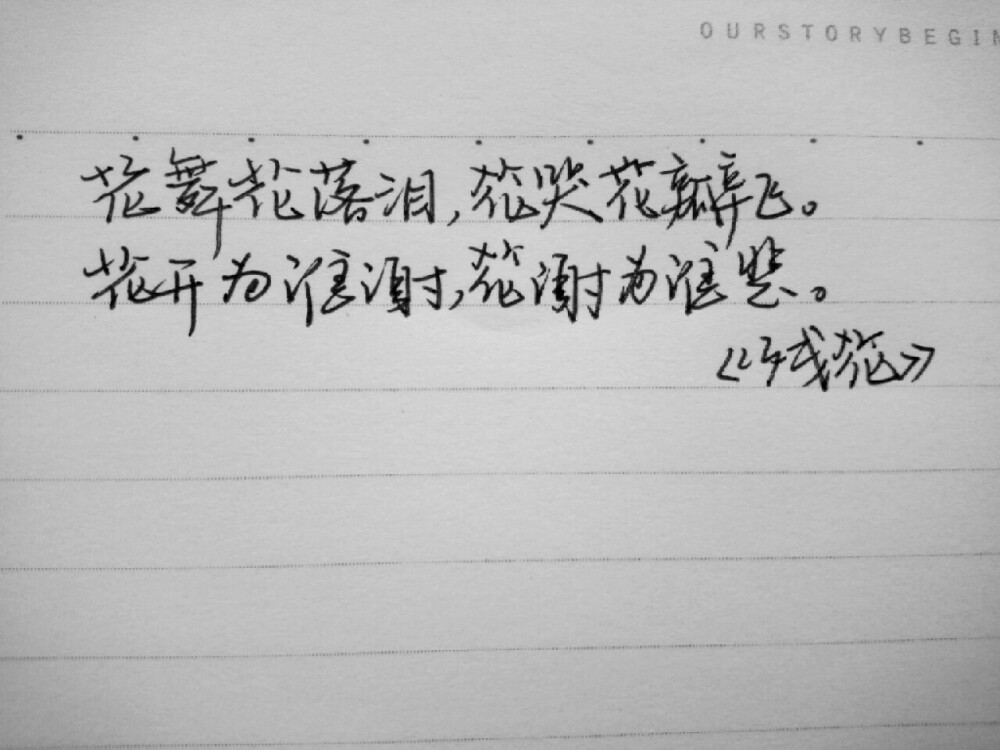 OURSTORYBEGIN
花舞花落泪,花哭花瓣飞。
花开为谁谢,花谢为谁悲。
《残花》